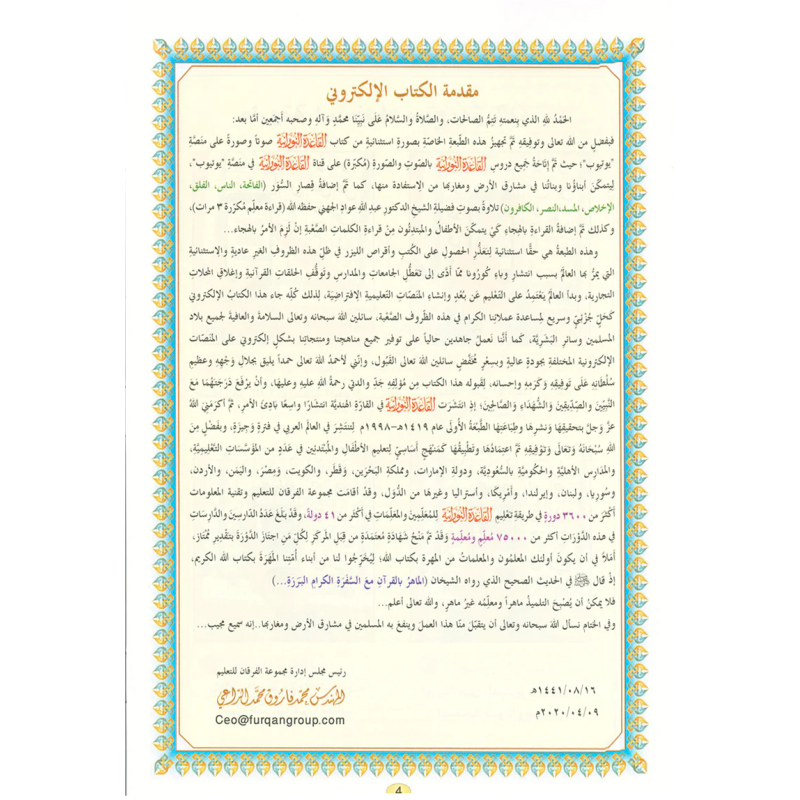 مقدمة الكتاب الإلكتروني
الحَمْدُ للهِ الذي بنعمتِهِ تَتِمُّ الصالحات، والصَّلاةُ والسَّلامُ عَلَى نَبِيِّنَا محمَّدٍ وَآلِهِ وصحبه أجمَعِين أمَّا بعد:
فبفضلٍ من الله تعالى وتوفيقِهِ تمَّ تجهيزُ هذه الطَّبعةِ الخاصَّةِ بصورةٍ استثنائيةٍ من كتاب القَاعِدَةُ النُّورَانِيَّة صوتاً وصورةً على مَنصَّةِ
"يوتيوب"؛ حيث تمَّ إتاحَةُ جَميعِ دروسِ القَاعِدَةُ النُّورَانِيَّة بالصَّوتِ والصُّورةِ (مُكبّرة) على قناة القَاعِدَةُ النُّورَانِيَّة في مَنصَّةِ "يوتيوب"،
لِيتمكَّنَ أبناؤُنا وبناتُنا في مشارق الأرض ومغاربها من الاستفادة منها، كما تمَّ إضافَةُ قِصارِ السُّوَر (الفاتحة، الناس، الفلق،
الإخلاص، المسد،النصر، الكافرون) تلاوةً بصوتِ فضيلةِ الشيخِ الدكتور عبدِ اللهِ عوادٍ الجهنيِّ حفظه الله (قراءةَ معلِّمٍ مُكرّرة ٣ مرات)،
وكذلك تمَّ إضافَةُ القراءةِ بالهِجاءِ كَيْ يتمكّنَ الأطفالُ والمبتدِئُون مِنْ قراءةِ الكلماتِ الصَّعبةِ إنْ لَزِمَ الأمرُ بالهجاء...
وهذه الطبعةُ هي حقًّا استثنائية لِتَعذُّرِ الحصولِ على الكُتُبِ وأقراصِ الليزر في ظلِّ هذه الظروفِ الغيرِ عاديةٍ والاستثنائيةِ
التي يمرُّ بها العالمُ بسببِ انتشارِ وباءِ كُورُونا ممَّا أدَّى إلى تَعطُّلِ الجامعاتِ والمدارسِ وتَوقُّفِ الحلقاتِ القرآنيةِ وإغلاقِ المحلاتِ
التجارية، وبدأ العالمُ يَعْتمِدُ على التَّعليمِ عَنْ بُعْدٍ وإنشاءِ المَنصّاتِ التّعليميةِ الافتراضيّة، لِذلك كُلِّه جاء هذا الكتابُ الإلكتروني
كَحَلٍّ جُزْئِيٍّ وسريعٍ لِمساعدةِ عملائِنا الكرام في هذه الظّروفِ الصَّعْبة، سائلين الله سبحانه وتعالى السلامةَ والعافيةَ لجميع بلاد
المسلمين وسائرِ البَشَرِيَّة، كما أنَّنا نَعملُ جاهدين حالياً على توفيرِ جَميعِ مناهجِنا ومنتجاتِنا بشكلٍ إلكتروني على المنصّات
الإلكترونية المختلفةِ بجودةٍ عاليةٍ وبسِعْرٍ مُخفَّضٍ سائلين الله تعالى القَبُول، وإنَّني لأحمدُ الله تعالى حمداً يليق بجلالِ وَجْهِهِ وعظيمِ
سُلْطَانِهِ عَلَى تَوفيقِهِ وَكَرَمِهِ وإحسانه، لِقَبولِه هذا الكتابَ مِن مُؤلِّفِهِ جَدِّ والدتي رحمةُ اللهِ عليهِ وعليها، وأنْ يرفَعَ دَرَجتَهُمَا مَعَ
النَّبِيِّينَ والصِّدِّيقِينَ وَالشُّهَدَاءِ وَالصَّالِحِينَ؛ إذِ انتَشَرَت القَاعِدَةُ النُّورَانِيَّة في القارَّةِ الهنديَّةِ انتشارًا واسِعًا بادِئَ الأمرِ، ثمَّ أكرَمَنِيَ اللهُ
عَزَّ وَجَلَّ بتحقيقِهَا وَنشرِهَا وطِبَاعَتِهَا الطَّبْعَةَ الأُولَى عام ١٤١٩هـ-١٩٩٨م لِتنتَشِرَ في العالَمِ العربي في فترةٍ وَجِيزَةٍ، وبفَضْلٍ مِنَ
اللهِ سُبْحَانَهُ وَتَعَالَى وَتَوْفِيقِهِ تمَّ اعتِمادُهَا وتَطبِيقُهَا كَمَنْهَجٍ أَسَاسِيٍّ لِتعليمِ الأطفالِ والمُبْتَدئين في عَدَدٍ مِنَ المؤسَّسَاتِ التّعليميَّةِ،
والمَدَارِسِ الأهليَّةِ والحُكُومِيَّةِ بِالسُّعُودِيَّةِ، ودولةِ الإمارات، ومملكةِ البَحْرَين، وَقَطَر، والكويت، وَمِصْرَ، واليَمَن، والأردن،
وسُورِيا، ولبنان، وإيرلندا، وأَمْرِيكَا، وأستراليا وغيرِها من الدُّوَل، وقدْ أقامَت مجموعة الفرقان للتعليم وتقنية المعلومات
أكثَرَ من ٣٦٠٠ دورةٍ في طريقةِ تعْلِيمِ القَاعِدَةُ النُّورَانِيَّة للمُعَلِّمِينَ والمعَلِّمَاتِ في أكثَرَ من ٤١ دولةً، وقدْ بَلَغَ عَدَدُ الدَّارِسِينَ والدَّارِسَاتِ
في هذه الدَّوْرَاتِ أكثر من ٧٥٠٠٠ مُعلِّمٍ ومُعلِّمةٍ وَقَدْ تمَّ مَنْحُ شَهَادَةٍ مُعتمَدَةٍ من قِبَلِ المركَزِ لِكُلِّ مَنِ اجتازَ الدَّوْرَةَ بتقديرِ مُمْتَاز،
أمَلاً في أن يكونَ أولئك المعلِّمُون والمعلماتُ من المهرةِ بكتابِ الله؛ لِيُخَرِّجُوا لنا من أبناء أُمَّتِنا المَهَرَةَ بكتاب الله الكريم،
إذْ قال ﷺ في الحديث الصحيح الذي رواه الشيخان (الماهرُ بالقرآنِ معَ السَّفَرَةِ الكرامِ البَرَرَةِ...)
فلا يمكنُ أن يُصْبحَ التلميذُ ماهراً ومعلِّمُه غيرُ ماهرٍ، والله تعالى أعلم...
وفي الختام نسألُ الله سبحانه وتعالى أن يتقبّلَ منّا هذا العملَ وينفعَ به المسلمين في مشارق الأرض ومغاربها..إنه سميع مجيب...
رئيس مجلس إدارة مجموعة الفرقان للتعليم
١٤٤١/٠٨/١٦هـ
المهندس محمد فاروق محمد الراعي
٢٠٢٠/٠٤/٠٩م
Ceo@furqangroup.com
4